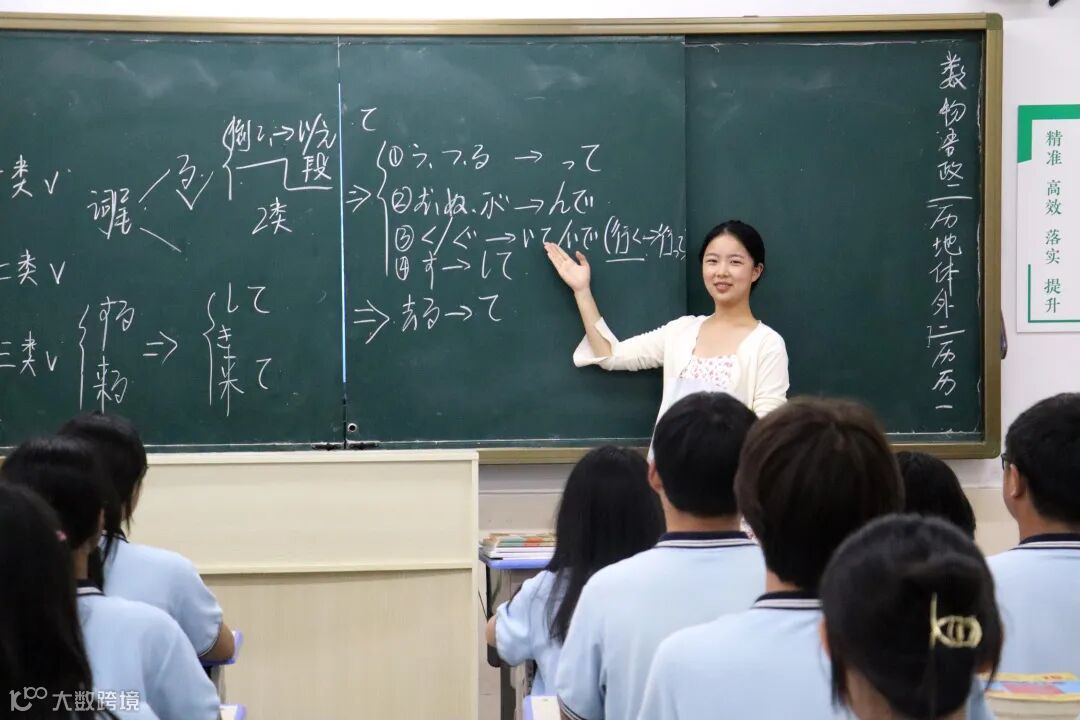 一类v
词尾
る
例:→以え
段
2类
二类v
三类v
する
来る
⇒
して
き
来て
て
⇒
①う、つ、る→って
②む、ぬ、ぶ→んで
③く/ぐ→いて/いで(行く→行って
④す→して
⇒去る→て
数物语政二历地体外仁二历历一
精准 高效 落实 提升
100 大数跨境